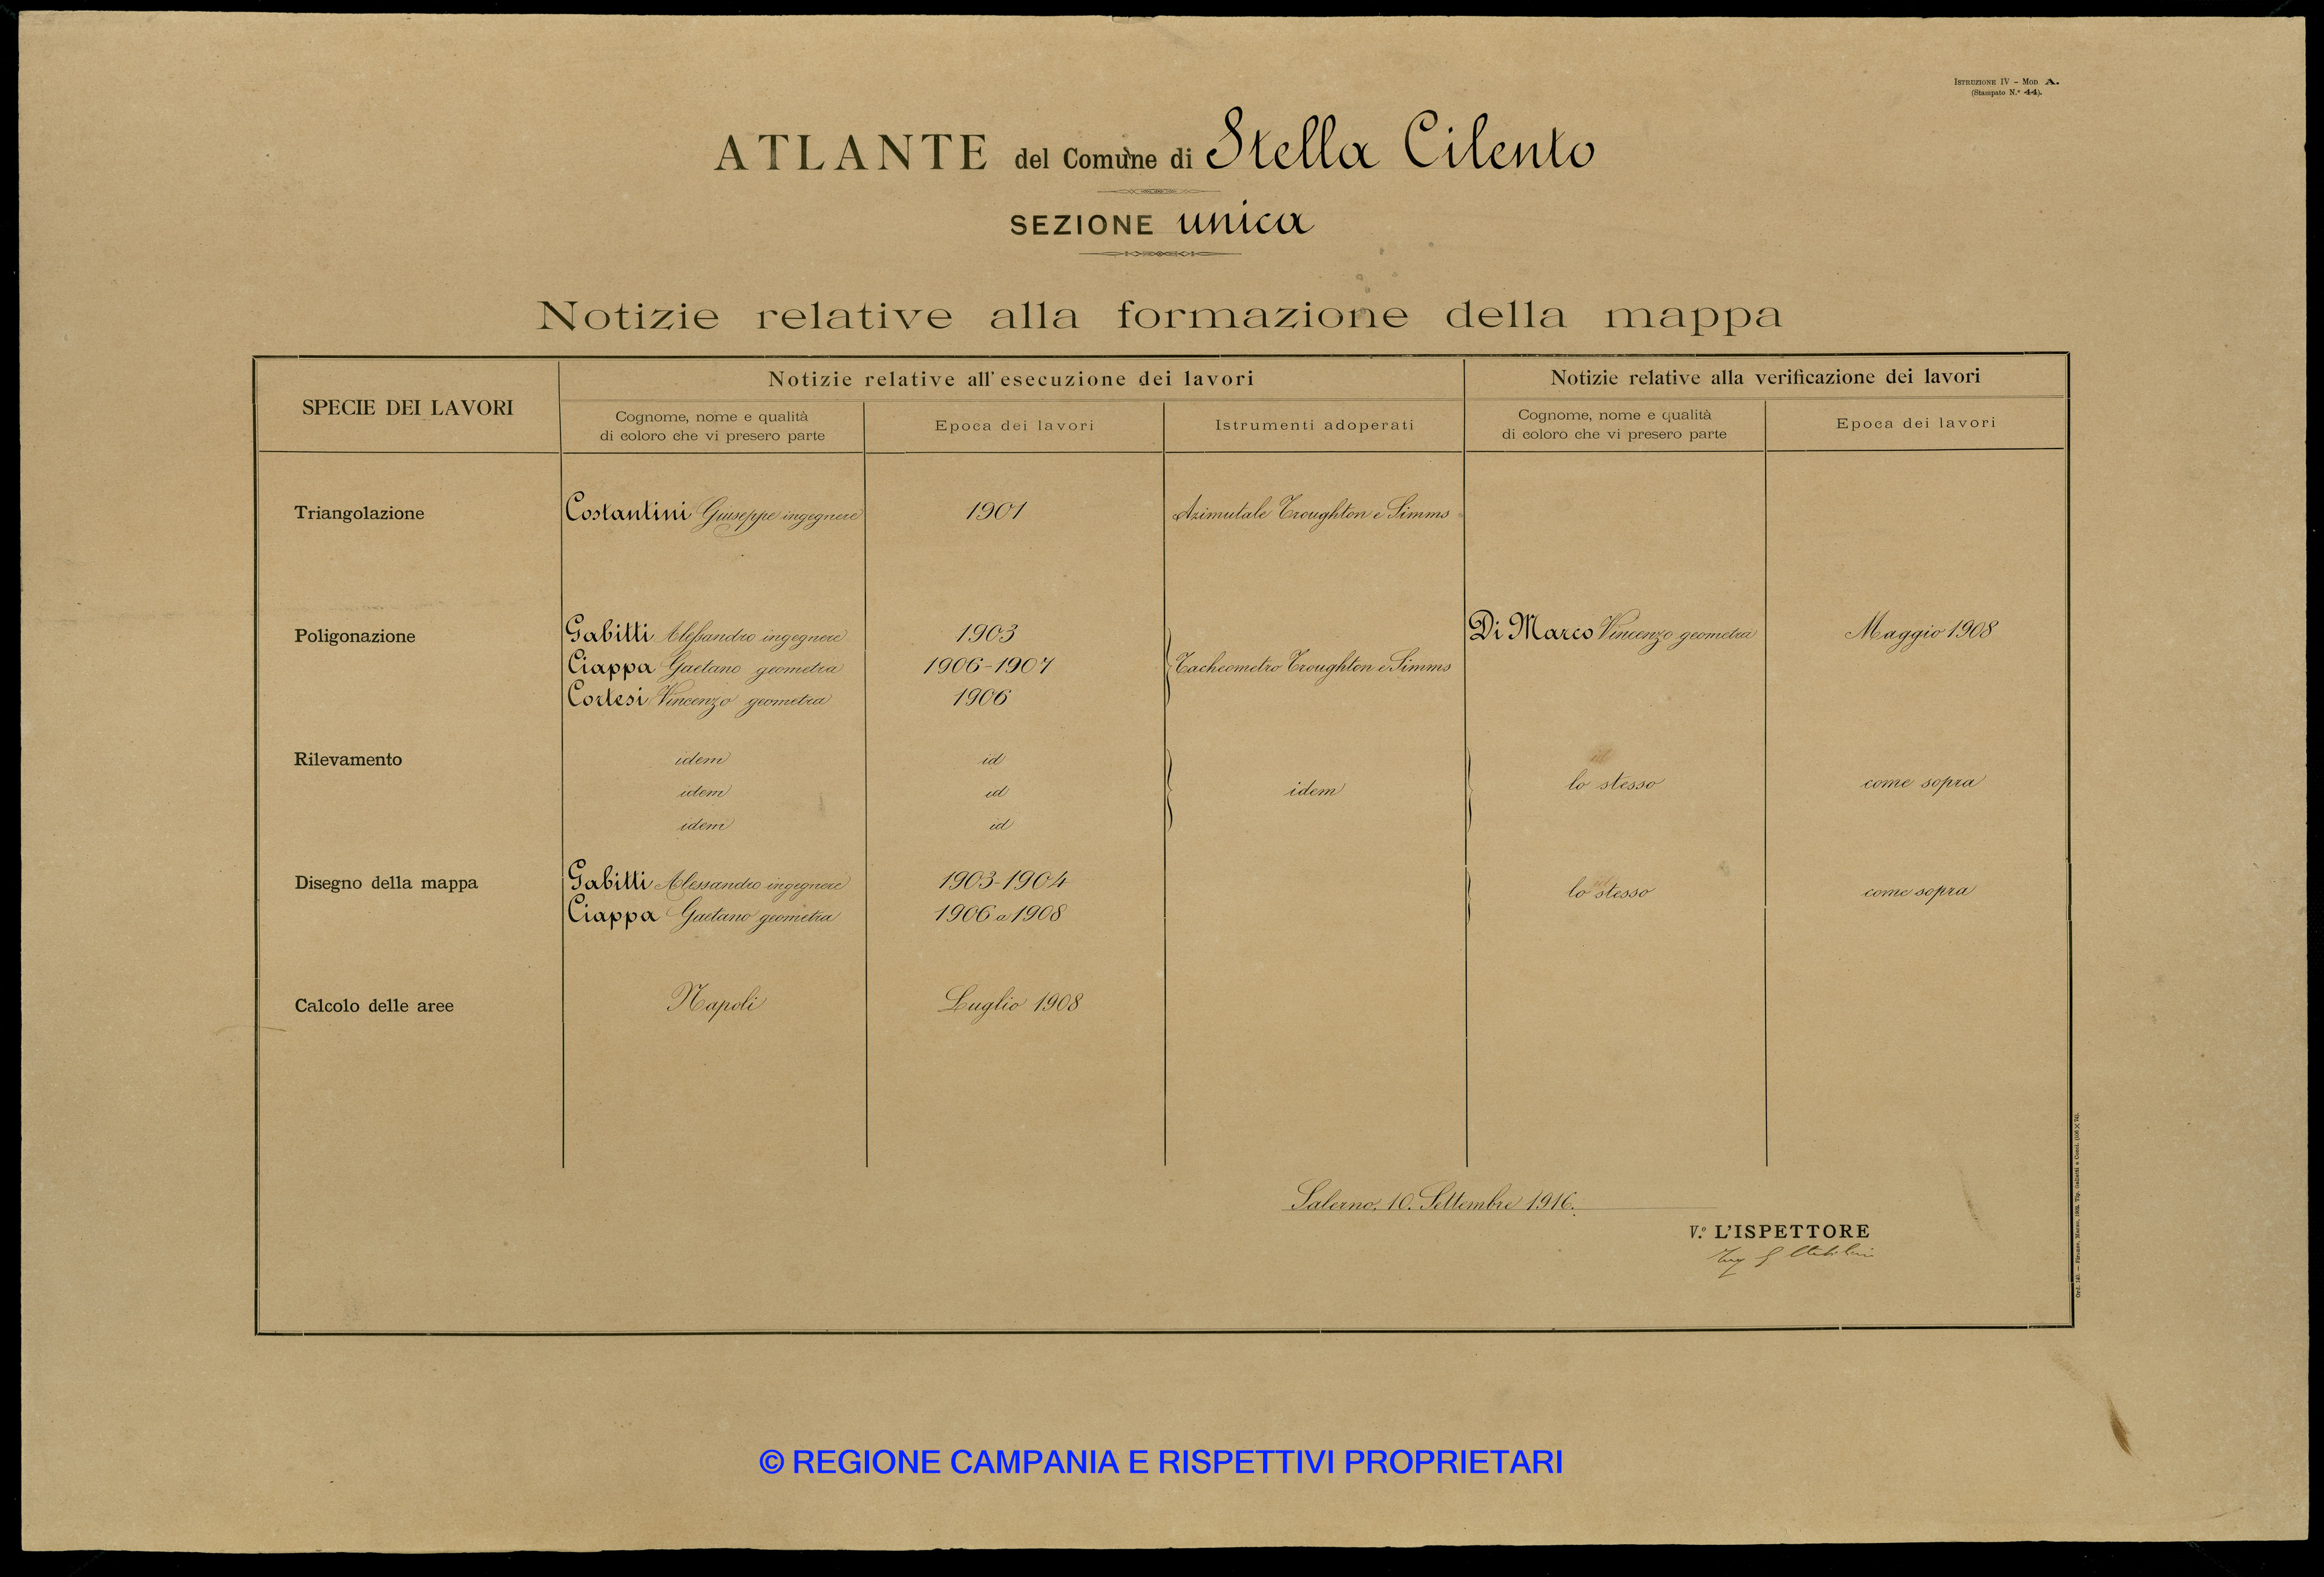 ISTRUZIONE IV - MOD A.
(Stampato N.º 44).
ATLANTE del Comune di Stella Cilento
SEZIONE unica
Notizie relative alla formazione della mappa
SPECIE DEI LAVORI
Notizie relative all'esecuzione dei lavori
Notizie relative alla verificazione dei lavori
Cognome, nome e qualità
di coloro che vi presero parte
Epoca dei lavori
Istrumenti adoperati
Cognome, nome e qualità
di coloro che vi presero parte
Epoca dei lavori
Triangolazione
Costantini Giuseppe ingegnere
1901
Azimutale Troughton e Simms
Poligonazione
Gabitti Alessandro ingegnere
1903
Ciappa Gaetano geometra
1906-1907
Cortesi Vincenzo geometra
1906
Tacheometro Troughton e Simms
Di Marco Vincenzo geometra
Maggio 1908
Rilevamento
idem
id
idem
id
idem
id
idem
lo stesso
come sopra
Disegno della mappa
Gabitti Alessandro ingegnere
1903-1904
Ciappa Gaetano geometra
1906 a 1908
lo stesso
come sopra
Calcolo delle aree
Napoli
Luglio 1908
Salerno, 10. Settembre 1916.
V.º L'ISPETTORE
© REGIONE CAMPANIA E RISPETTIVI PROPRIETARI